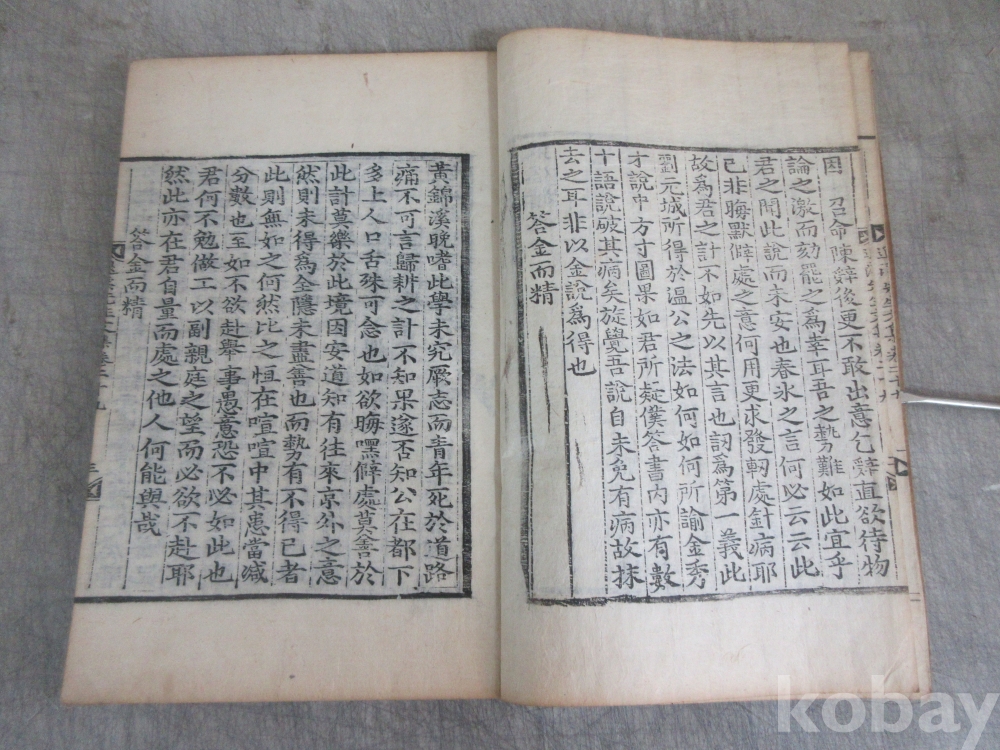 因 召命陳辭後更不敢出意乞辭直欲待物
論之激而劾罷之為幸耳吾之勢難如此宜乎
君之聞此說而未安也春氷之言何必云云此
已非晦默僻處之意何用更求發軔處針病耶
故為君之計不如先以其言也訒為第一義此
劉元城所得於溫公之法如何如何所諭金秀
才說中方寸圖果如君所疑僕答書內亦有數
十語說破其病矣旋覺吾說自未免有病故抹
去之耳非以金說為得也
答金而精
黃錦溪晚嗜此學未究厥志而青年死於道路
痛不可言歸耕之計不知果遂否知公在都下
多上人口舌殊可念也如欲晦嘿僻處莫善於
此計莫樂於此境因安道知有往來京外之意
然則未得為全隱未盡善也而勢有不得已者
此則無如之何然比之恒在喧喧中其患當減
分數也至如不欲赴舉事愚意恐不必如此也
君何不勉做工以副親庭之望而必欲不赴耶
然此亦在君自量而處之他人何能與哉
答金而精
kobay